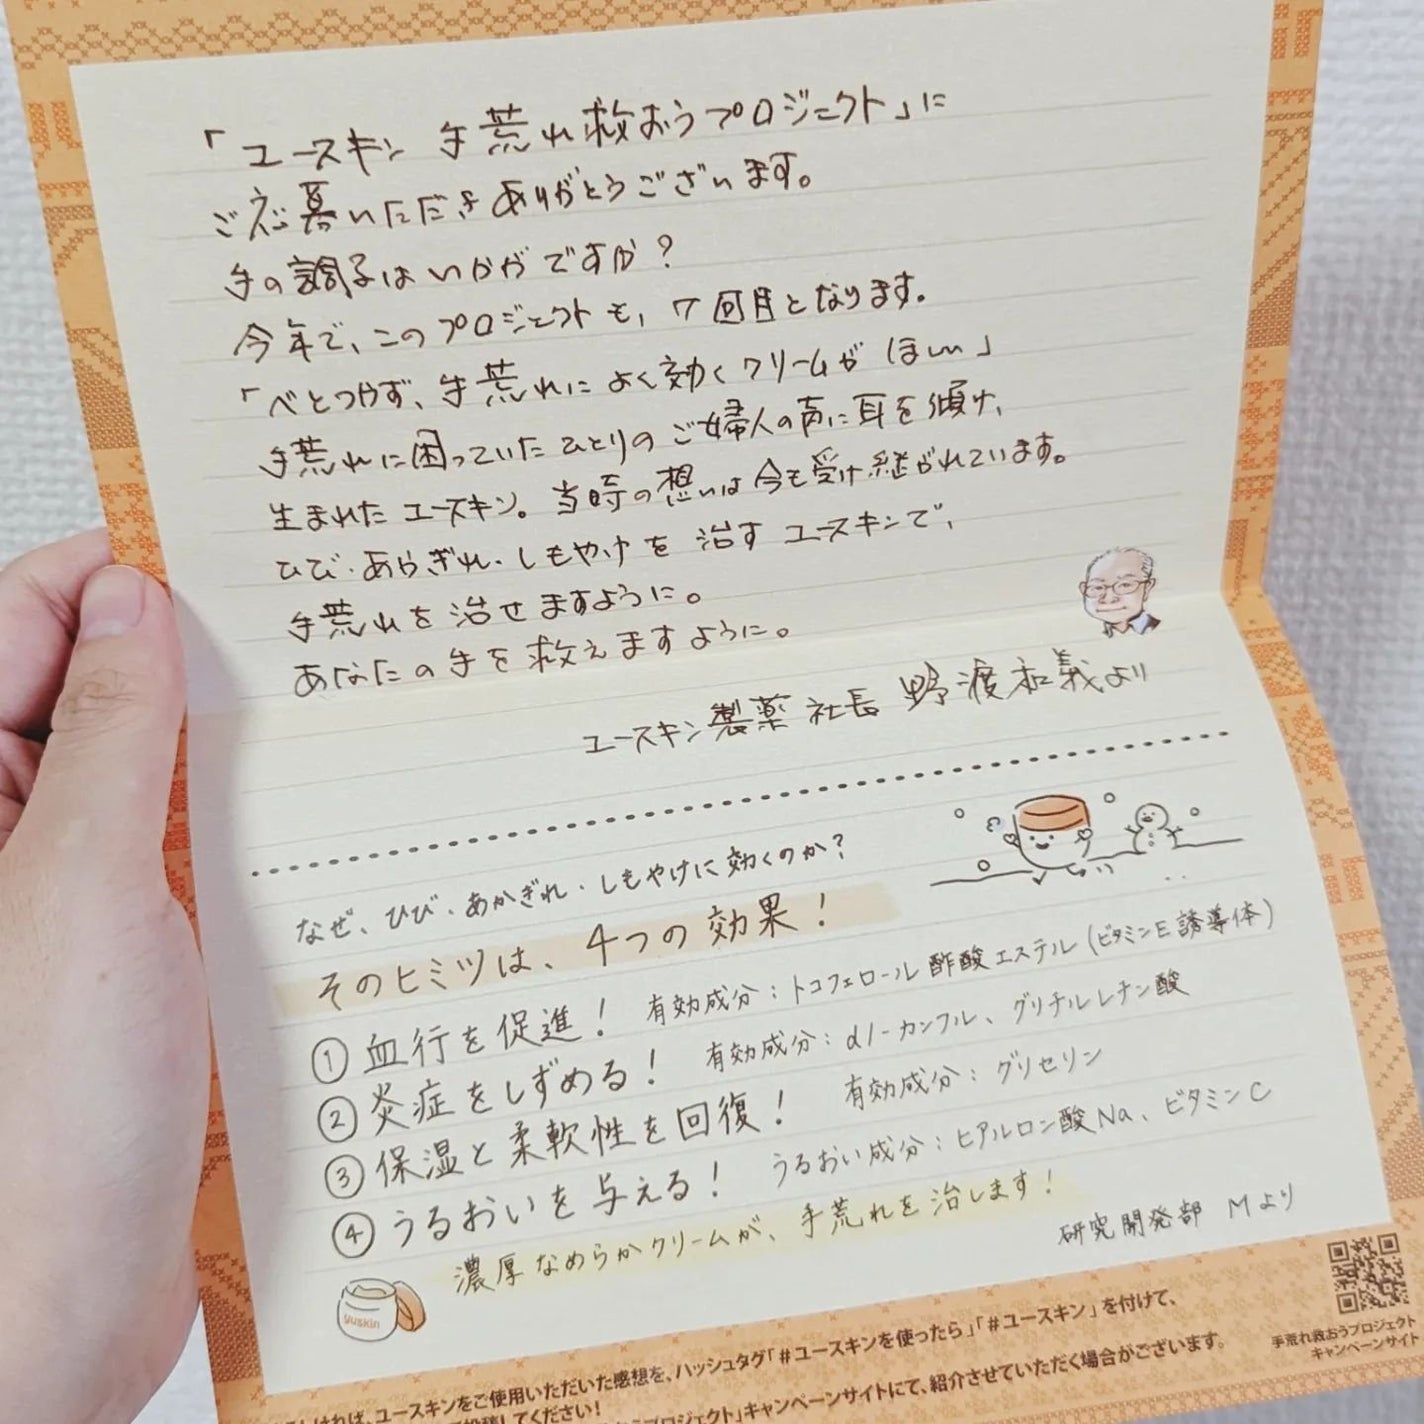 「ユースキン 手荒れ救おうプロジェクト」に
ご応募いただきありがとうございます。
手の調子はいかがですか?
今年で、このプロジェクトも、7回目となります。
「べとつかず、手荒れによく効くクリームがほしい」
手荒れに困っていたひとりのご婦人の声に耳を傾け、
生まれたユースキン。当時の想いは今も受け継がれています。
ひび・あかぎれ・しもやけを治すユースキンで、
手荒れを治せますように。
あなたの手を救えますように。
ユースキン製薬 社長 野渡和義より
なぜ、ひび・あかぎれ・しもやけに効くのか?
そのヒミツは、4つの効果!
①血行を促進! 有効成分:トコフェロール酢酸エステル(ビタミンE誘導体)
②炎症をしずめる! 有効成分:dl-カンフル、グリチルレチン酸
③保湿と柔軟性を回復! 有効成分:グリセリン
④うるおいを与える! うるおい成分:ヒアルロン酸Na、ビタミンC
濃厚なめらかクリームが、手荒れを治します!
研究開発部 Mより
yuskin
ければ、ユースキンをご使用いただいた感想を、ハッシュタグ「#ユースキンを使ったら」「#ユースキン」を付けて、
投稿してください!
プロジェクト」キャンペーンサイトにて、紹介させていただく場合がございます。
手荒れ救おうプロジェクト
キャンペーンサイト